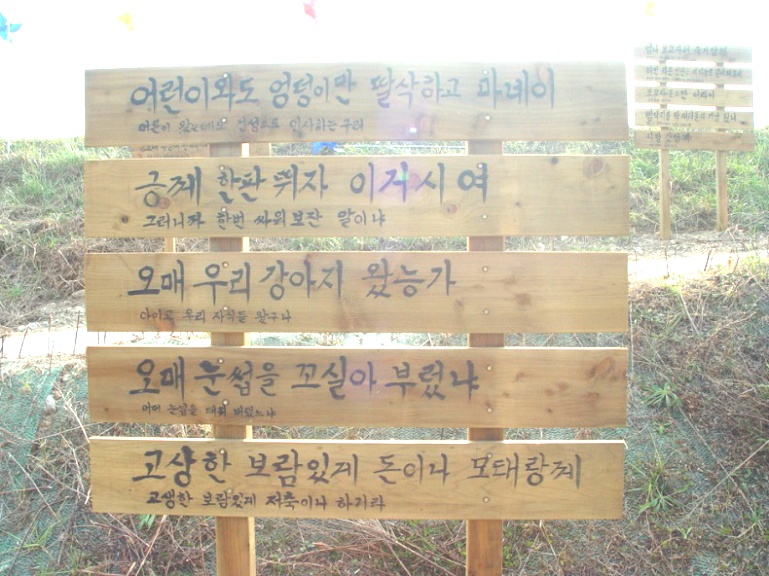 어런이와도 엉텅이만 딸삭하고 마네이
어른이 왔는데도 건성으로 인사하는구려
긍께 한판 뛰자 이거시여
그러니까 한번 싸워보잔 말이냐
오매 우리 강아지 왔능가
아이고 우리 자식들 왔구나
오매 눈썹을 꼬실아 부렀냐
어머 눈썹을 태워 버렸느냐
고상한 보람있게 돈이나 모태랑께
고생한 보람있게 저축이나 하거라